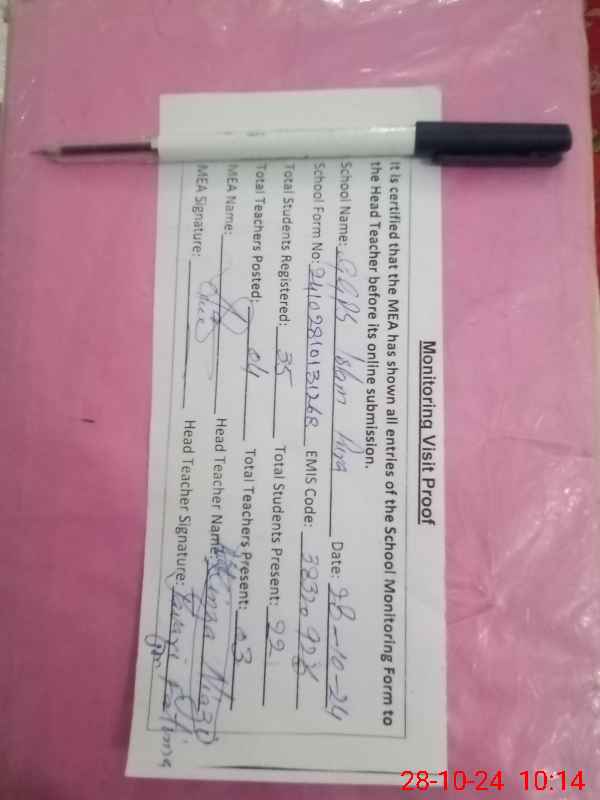 Monitoring Visit Proof
It is certified that the MEA has shown all entries of the School Monitoring Form to
the Head Teacher before its online submission.
School Name: GGPS Islam Pura Date: 28-10-24
School Form No: 24102810131268 EMIS Code: 38320928
Total Students Registered: 35 Total Students Present: 22
Total Teachers Posted: 04 Total Teachers Present: 03
MEA Name: Head Teacher Name: Niazi
MEA Signature: Head Teacher Signature: Fatima
28-10-24 10:14